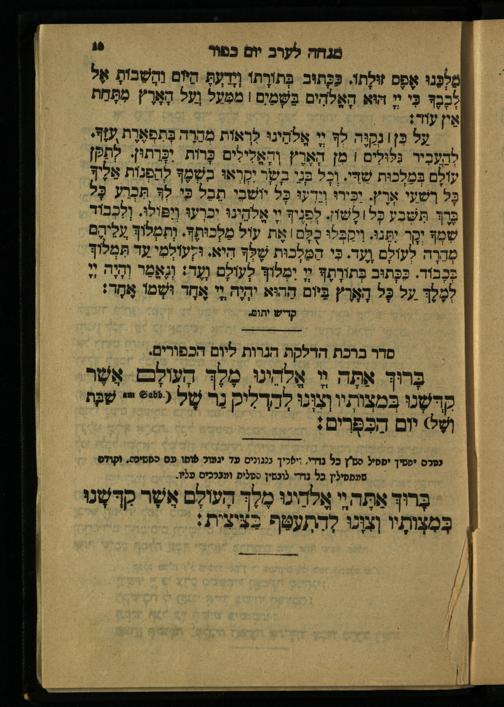 10 מנחה לערב יום כפור
מַלְכֵּנוּ אֶפֶס זוּלָתוֹ. כַּכָּתוּב בְּתוֹרָתוֹ וְיָדַעְתָּ הַיּוֹם וַהֲשֵׁבוֹתָ אֶל
לְבָבֶךָ כִּי יְיָ הוּא הָאֱלֹהִים בַּשָּׁמַיִם ׀ מִמַּעַל וְעַל הָאָרֶץ מִתָּחַת
אֵין עוֹד:
עַל כֵּן ׀ נְקַוֶּה לְךָ יְיָ אֱלֹהֵינוּ לִרְאוֹת מְהֵרָה בְּתִפְאֶרֶת עֻזֶּךָ.
לְהַעֲבִיר גִּלּוּלִים ׀ מִן הָאָרֶץ וְהָאֱלִילִים כָּרוֹת יִכָּרֵתוּן. לְתַקֵּן
עוֹלָם בְּמַלְכוּת שַׁדַּי. וְכָל בְּנֵי בָשָׂר יִקְרְאוּ בִשְׁמֶךָ לְהַפְנוֹת אֵלֶיךָ
כָּל רִשְׁעֵי אָרֶץ. יַכִּירוּ וְיֵדְעוּ כָּל יוֹשְׁבֵי תֵבֵל כִּי לְךָ תִּכְרַע כָּל
בֶּרֶךְ תִּשָּׁבַע כָּל ׀ לָשׁוֹן. לְפָנֶיךָ יְיָ אֱלֹהֵינוּ יִכְרְעוּ וְיִפּוֹלוּ. וְלִכְבוֹד
שִׁמְךָ יְקָר יִתֵּנוּ. וִיקַבְּלוּ כֻלָּם ׀ אֶת עוֹל מַלְכוּתֶךָ. וְתִמְלוֹךְ עֲלֵיהֶם
מְהֵרָה לְעוֹלָם וָעֶד. כִּי הַמַּלְכוּת שֶׁלְּךָ הִיא. וּלְעוֹלְמֵי עַד תִּמְלוֹךְ
בְּכָבוֹד. כַּכָּתוּב בְּתוֹרָתֶךָ יְיָ יִמְלוֹךְ לְעוֹלָם וָעֶד: וְנֶאֱמַר וְהָיָה יְיָ
לְמֶלֶךְ עַל כָּל הָאָרֶץ בַּיּוֹם הַהוּא יִהְיֶה יְיָ אֶחָד וּשְׁמוֹ אֶחָד:
קדיש יתום.
סדר ברכת הדלקת הנרות ליום הכפורים.
בָּרוּךְ אַתָּה יְיָ אֱלֹהֵינוּ מֶלֶךְ הָעוֹלָם אֲשֶׁר
קִדְּשָׁנוּ בְּמִצְוֹתָיו וְצִוָּנוּ לְהַדְלִיק נֵר שֶׁל (am Sabb. שַׁבָּת
וְשֶׁל) יוֹם הַכִּפֻּרִים:
יתחיל הש״ץ כל נדרי, ויאריך בנגונים עד
שמתחילין כל נדרי לובשין הטלית ומברכים עליו.
בָּרוּךְ אַתָּה יְיָ אֱלֹהֵינוּ מֶלֶךְ הָעוֹלָם אֲשֶׁר קִדְּשָׁנוּ
בְּמִצְוֹתָיו וְצִוָּנוּ לְהִתְעַטֵּף בַּצִּיצִית: